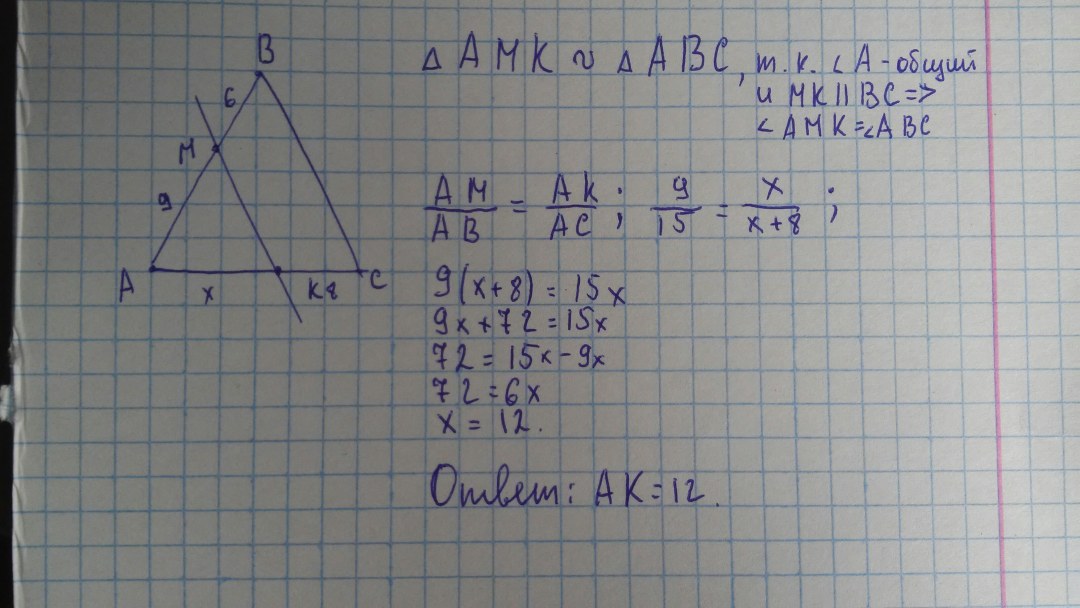 B
6
M
9
A
x
K 8
C
△AMK ∾ △ABC, т.к. ∠A - общий
и MK || BC =>
∠AMK = ∠ABC
AM/AB = AK/AC; 9/15 = x/x+8;
9(x+8) = 15x
9x+72 = 15x
72 = 15x-9x
72 = 6x
x = 12.
Ответ: AK = 12.